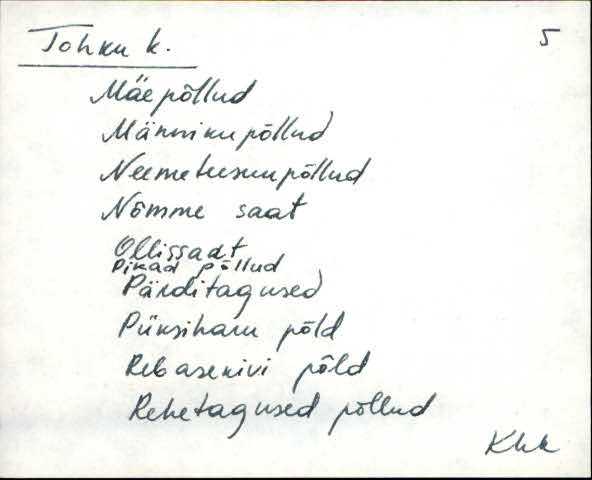 Tohku k.
5
Mäepõllud
Männikupõllud
Neemeteesuupõllud
Nõmme saat
Ollissaat
Pikad põllud
Pärditagused
Püksiharu põld
Rebasekivi põld
Rehetagused põllud
Khk